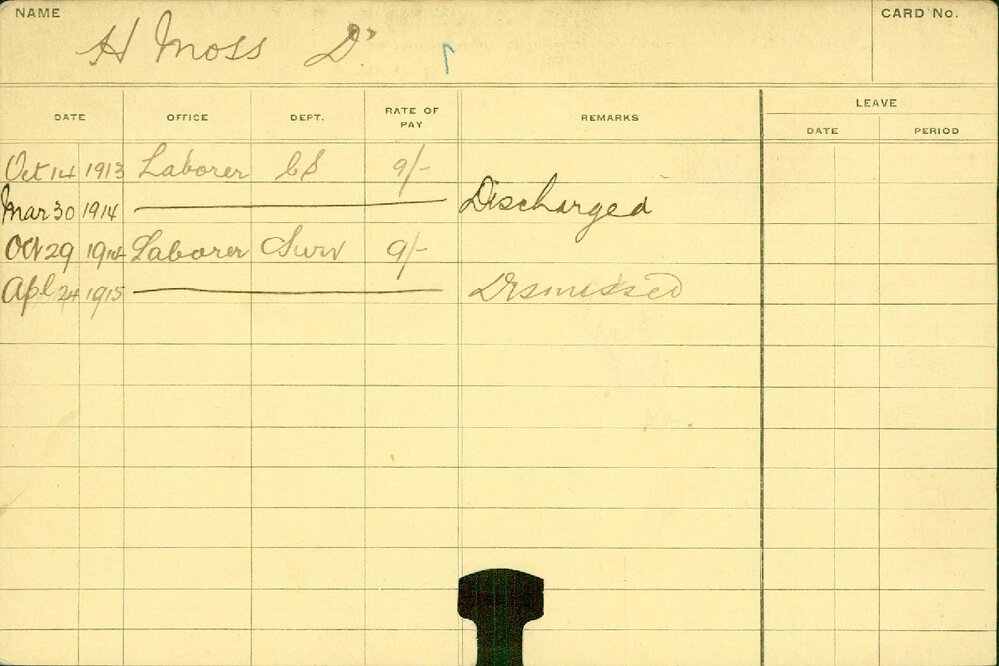 NAME CARD No.
H Moss D.
DATE OFFICE DEPT. RATE OF PAY REMARKS LEAVE
DATE PERIOD
Oct 14 1913 Laborer CS 9/-
Mar 30 1914 Discharged
Oct 29 1914 Laborer Surv 9/-
Apl 24 1915 Dismissed